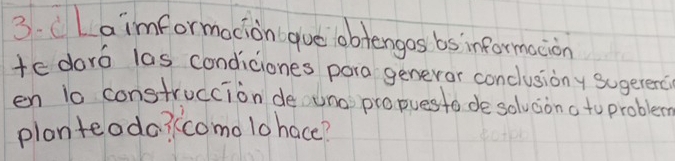 3.- ¿La imformación que obtengas bs información
te dará las condiciones para generar conclusión y sugerenci
en la construcción de una propuesta de solución a tu problem
planteado? ¿como lo hace?